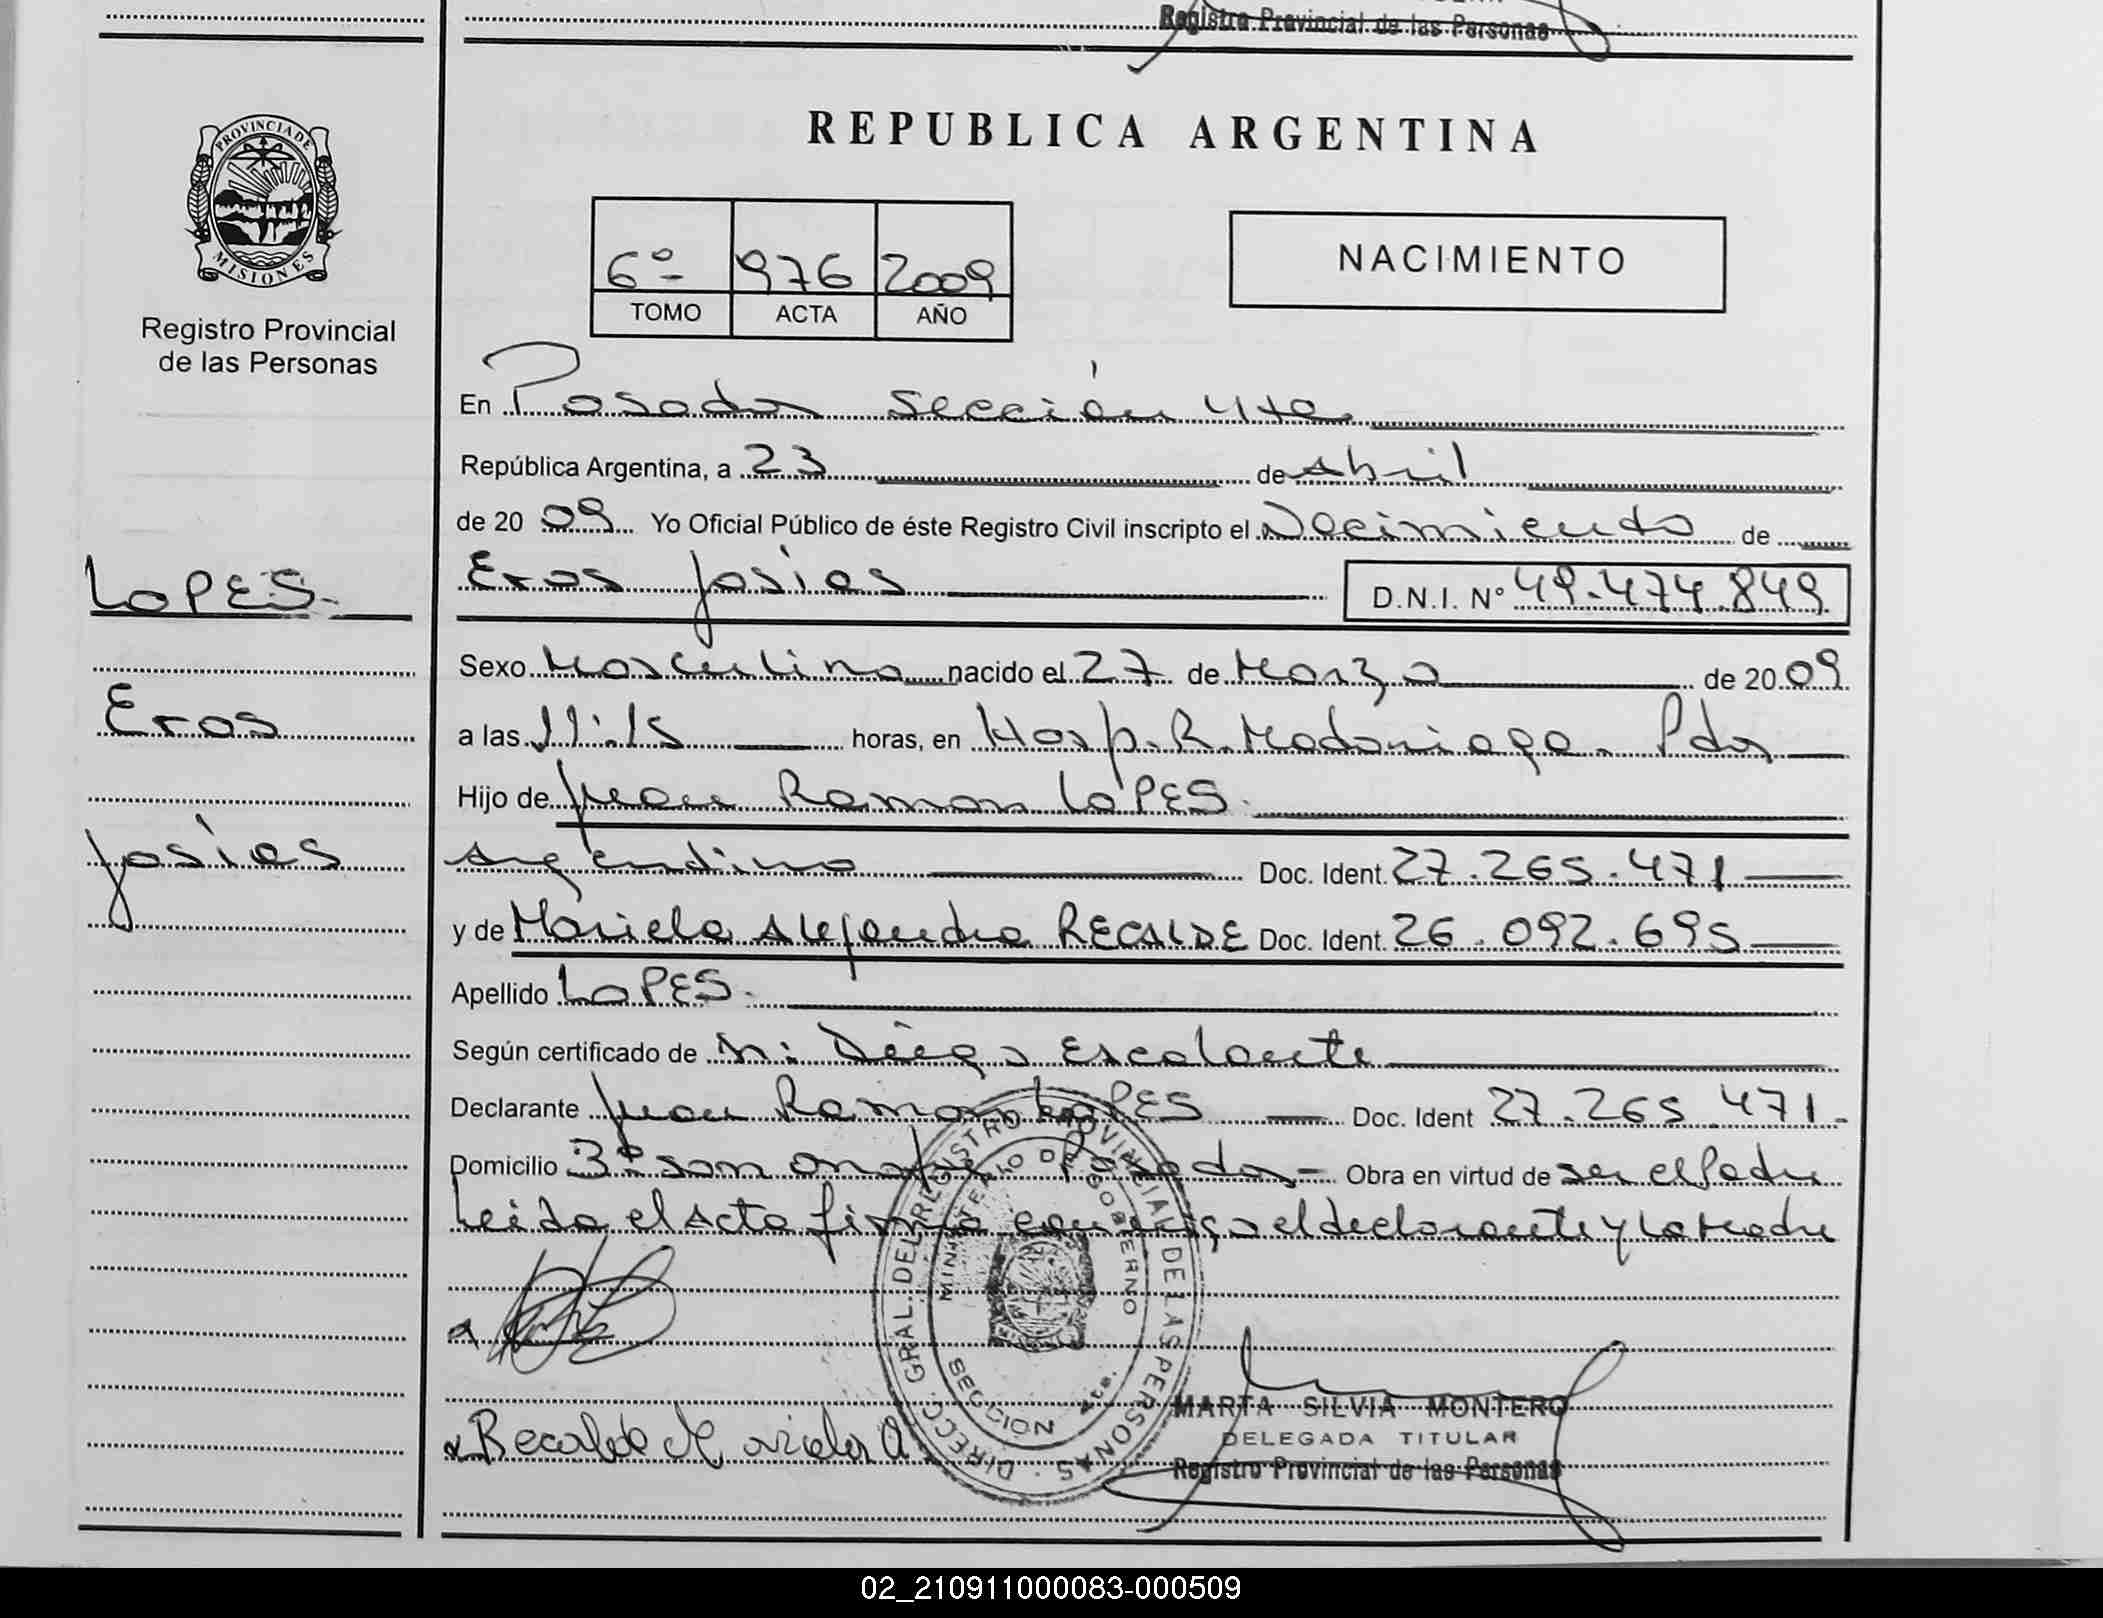 Registro Provincial de las Personas
PROVINCIA DE
MISIONES
Registro Provincial
de las Personas
LOPES.
Eros
Josias
REPUBLICA ARGENTINA
6º 976 2009
TOMO ACTA AÑO
NACIMIENTO
En Posadas Sección 4ta
República Argentina, a 23 de Abril
de 20 09 Yo Oficial Público de éste Registro Civil inscripto el Nacimiento de
Eros Josias D.N.I. Nº 49.474.849
Sexo Masculino nacido el 27 de Marzo de 20 09
a las 11:15 horas, en Hosp. R. Madariaga. Pdas
Hijo de Juan Ramon LOPES.
Argentino Doc. Ident. 27.265.471
y de Mariela Alejandra RECALDE Doc. Ident. 26.092.695
Apellido LOPES.
Según certificado de Diego Escalante
Declarante Juan Ramon LOPES Doc. Ident 27.265.471.
Domicilio Posadas Obra en virtud de ser el Padre
Leida el Acta firma conmigo el declarante y la Madre
DIRECC. GRAL. DEL REGISTRO PROVINCIAL DE LAS PERSONAS
MINISTERIO DE GOBIERNO
SECCION 4ta.
Recalde Mariela A
MARTA SILVIA MONTERO
DELEGADA TITULAR
Registro Provincial de las Personas
02_210911000083-000509